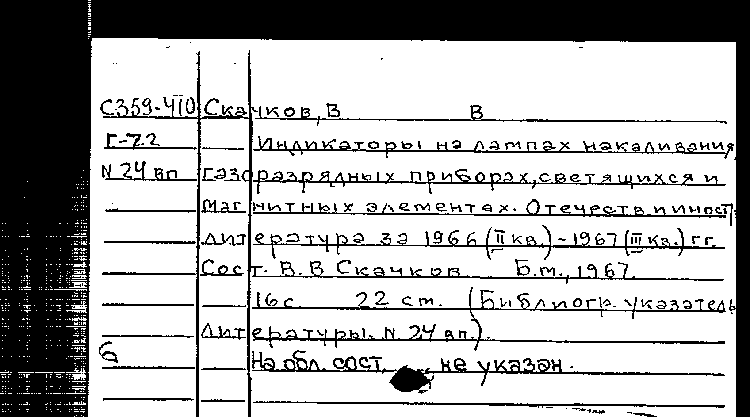 С359-410 Скачков, В В
Г-7.2 Индикаторы на лампах накаливания,
N 24 вп газоразрядных приборах, светящихся и
магнитных элементах. Отечеств. и иностр.
литература за 1966 (II кв.) - 1967 (III кв.) гг.
Сост. В. В Скачков Б.м., 1967.
16 с. 22 см. (Библиогр. указатель
литературы. N. 24 вп.)
б На обл. сост. не указан.